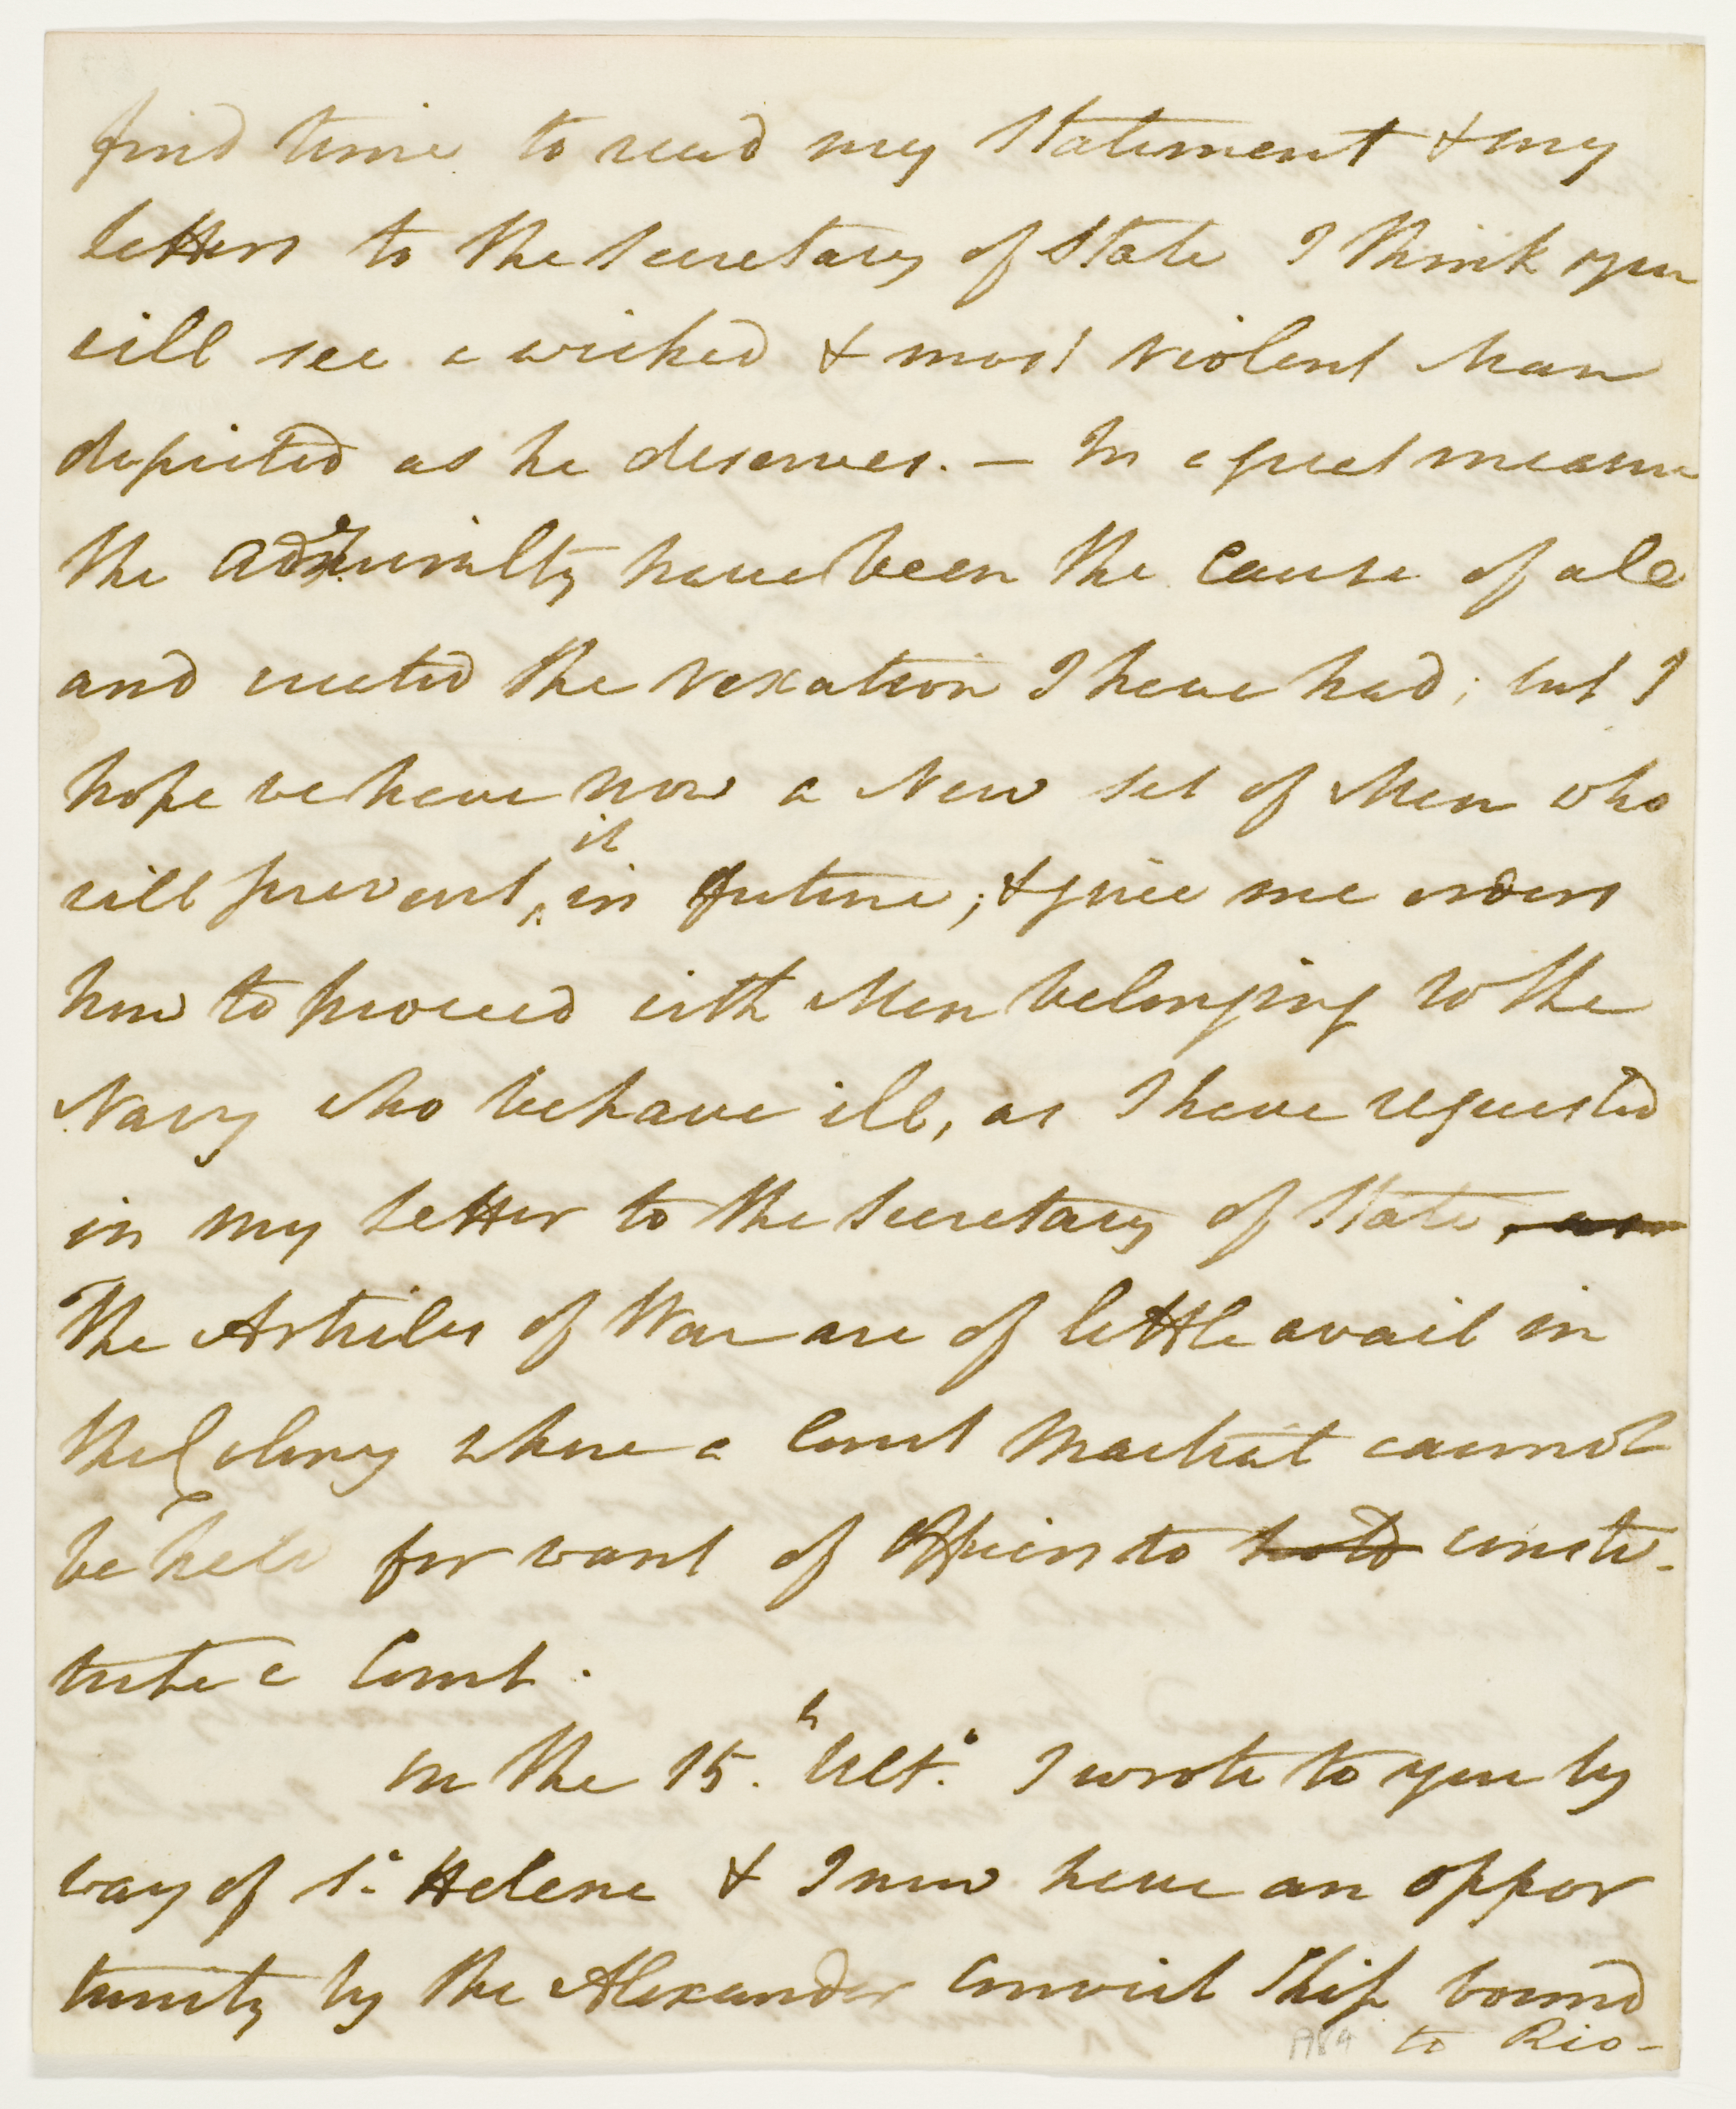 find time to read my Statement & my
letters to the Secretary of State I think you
will see a wicked & most violent Man
depicted as he deserves. — In a great measure
the Admiralty have been the Cause of all
and created the vexation I have had; but I
hope we have now a New set of Men who
will prevent it in future; & give me orders
how to proceed with Men belonging to the
Navy who behave ill, as I have requested
in my letter to the Secretary of State,
The Articles of War are of little avail in
the Colony where a Court Martial cannot
be held for want of Officers to hold consti-
tute a Court.
On the 15.th Ult.o I wrote to you by
way of St. Helena & I now have an oppor
tunity by the Alexander Convict Ship bound
to Rio-
A84